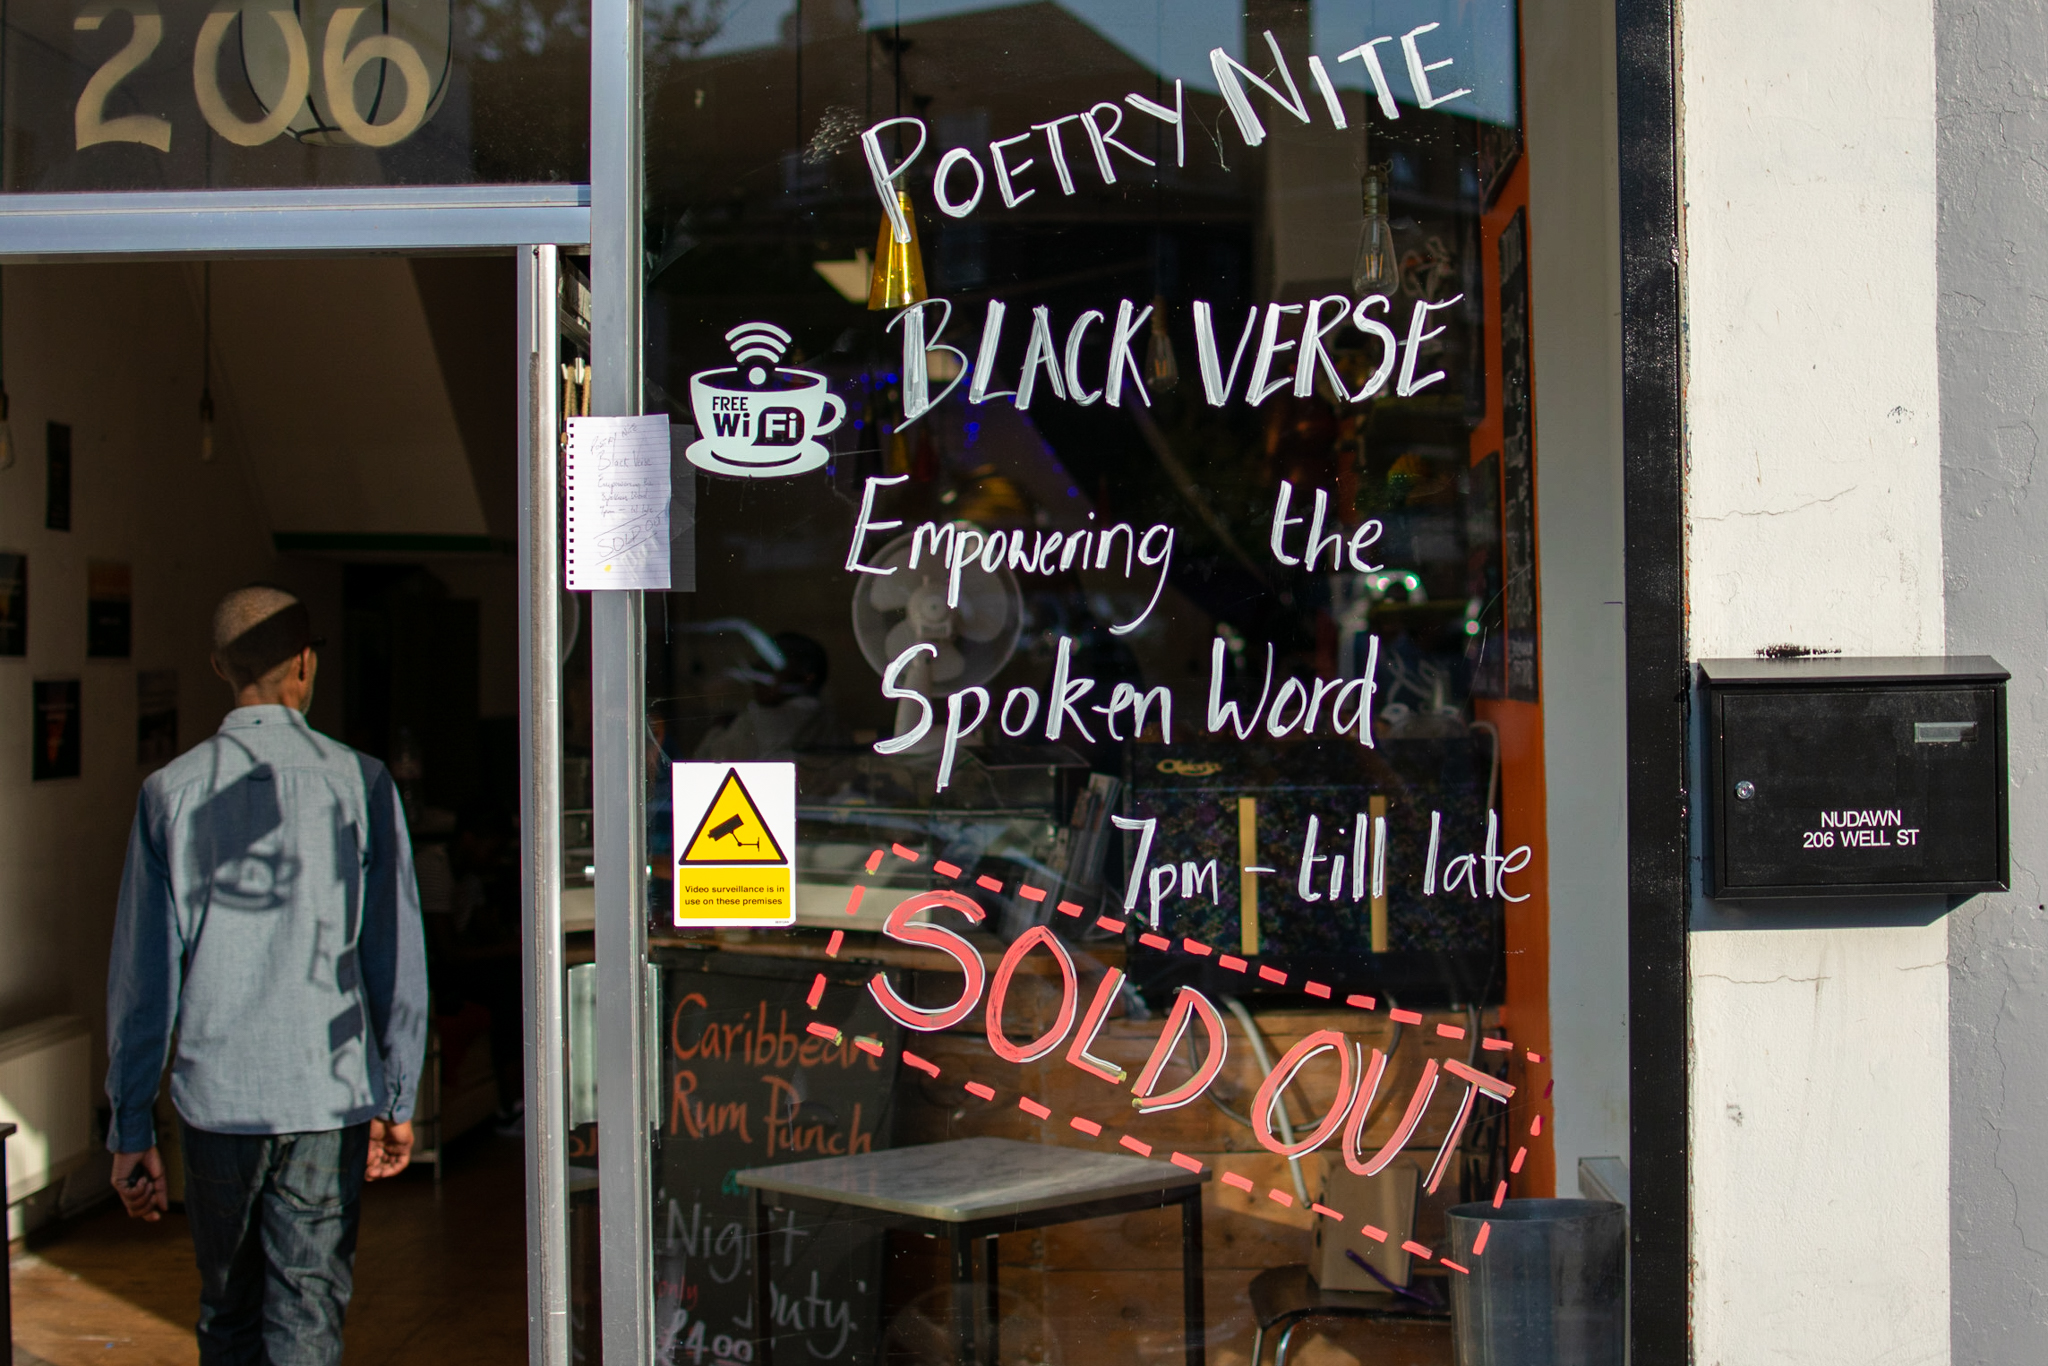 206
POETRY NITE
BLACK VERSE
Empowering the
Spoken Word
7pm - till late
SOLD OUT
FREE
Wi Fi
Poetry Nite
Black Verse
Empowering the
Spoken Word
7pm - til late
SOLD OUT
Video surveillance is in
use on these premises
Caribbean
Rum Punch
Night
only
Duty'
£4.00
NUDAWN
206 WELL ST